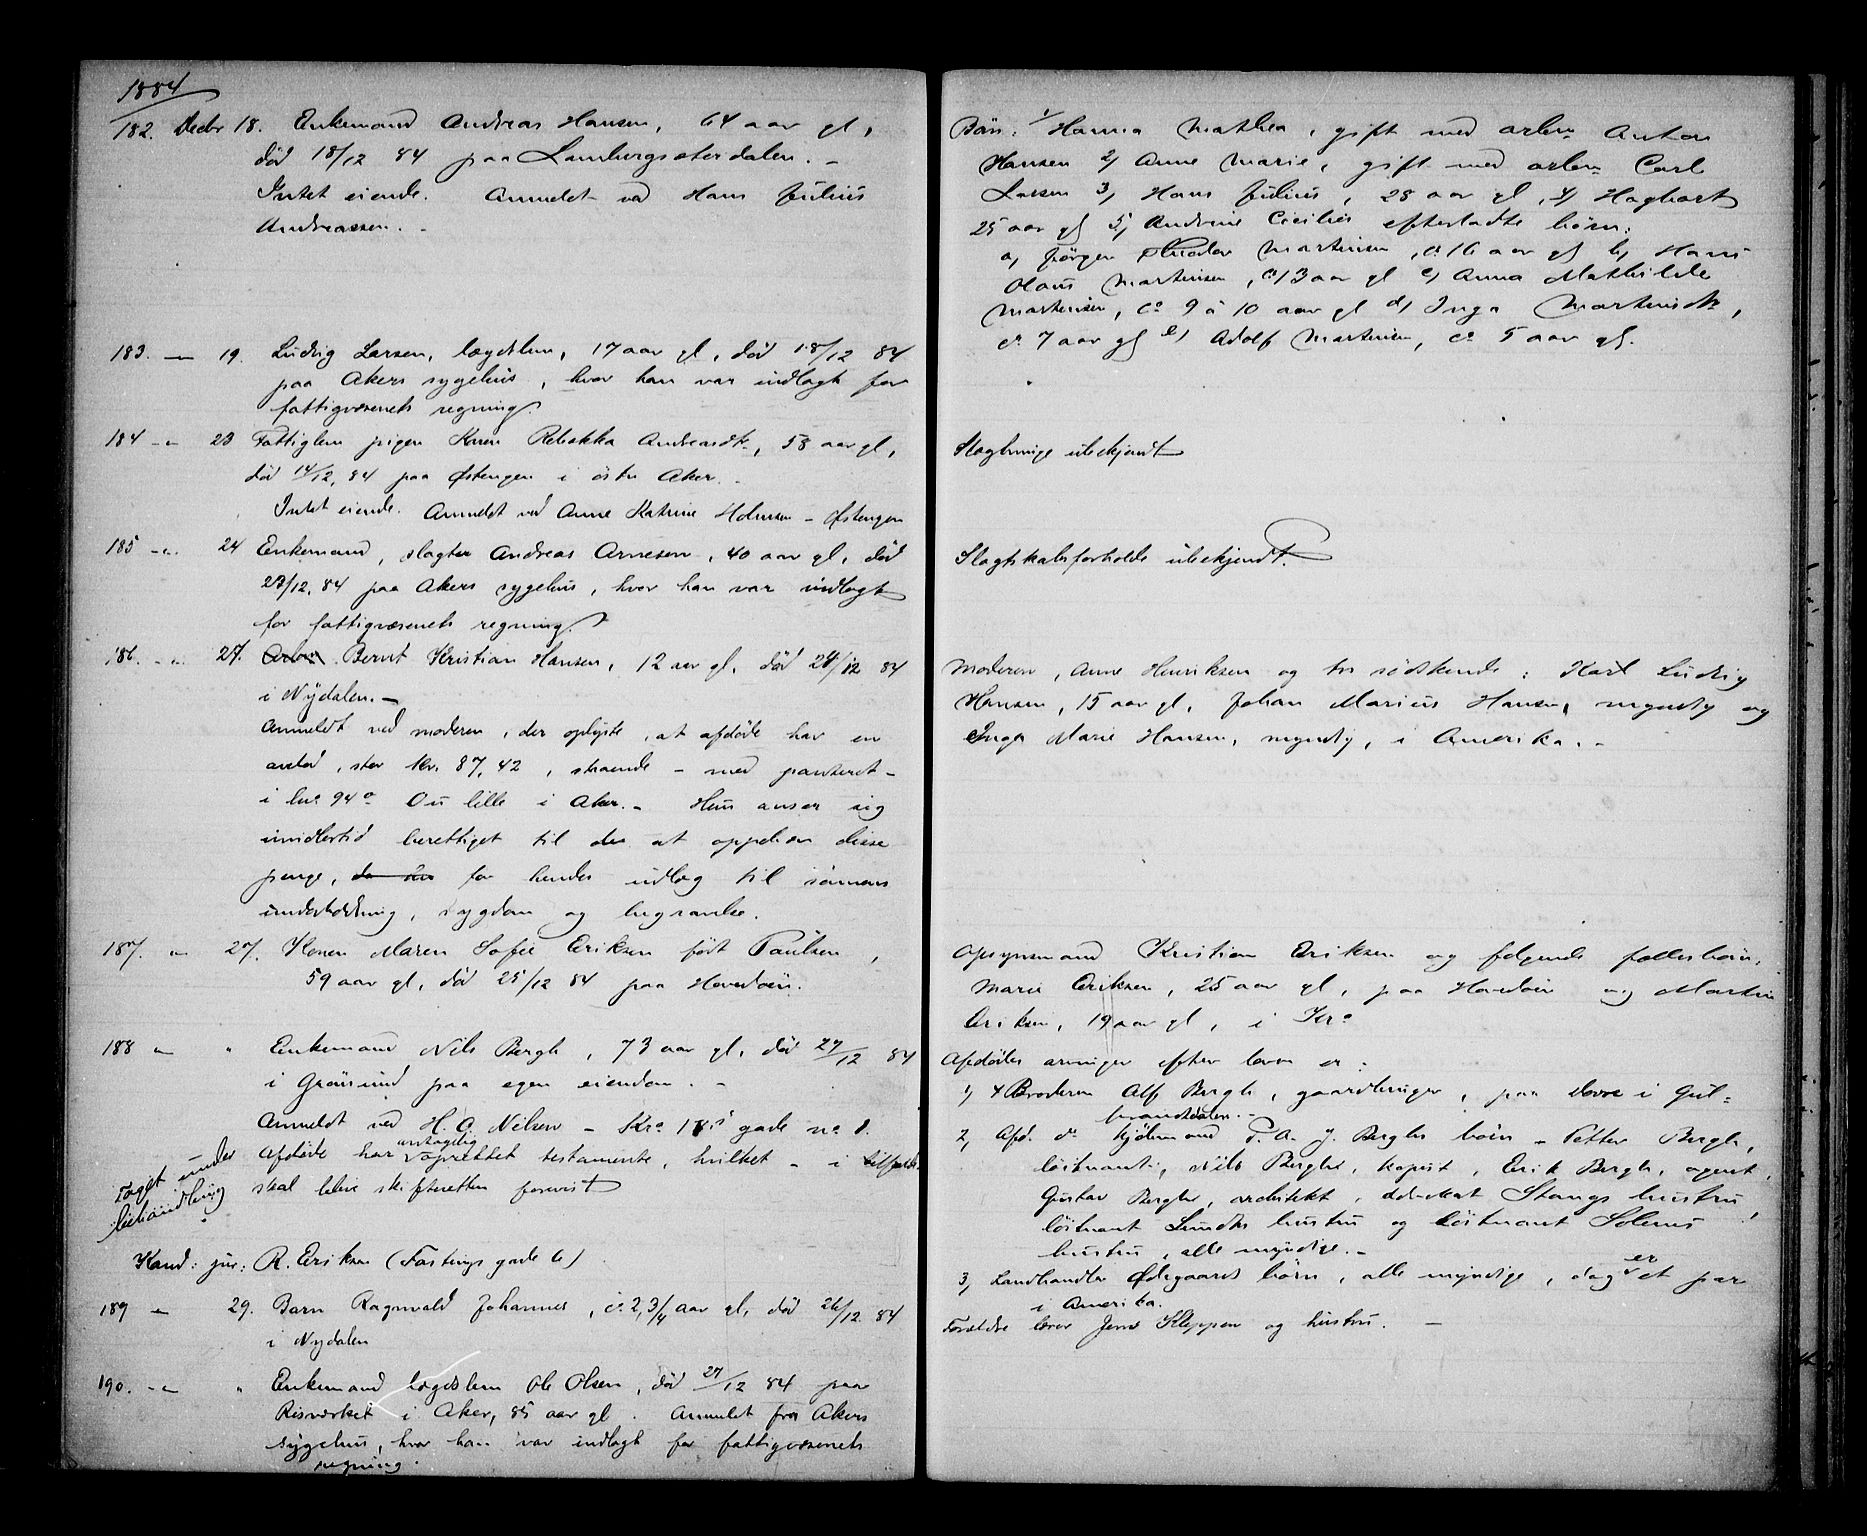 1884
182. Decbr 18. Enkemand Andreas Hansen, 64 aar gl,
död 18/12 84 paa Lambergsæterdalen. -
Intet eiende. Anmeldt ved Hans Julius
Andreassen. -
183. — 19. Ludvig Larsen, lægdslem, 17 aar gl, död 18/12 84
paa Akers sygehus, hvor han var indlagt for
fattigvæsenets regning.
184 - " 23 Fattiglem pigen Karen Rebekka Andreasdtr, 58 aar gl,
död 14/12, 84 paa Østengen i östre Aker. -
Intet eiende. Anmeldt ved Anne Katrine Holmsen - Østengen
185 - " 24 Enkemand, slagter Andreas Arnesen, 40 aar gl, död
23/12, 84 paa Akers sygehus, hvor han var indlagt
for fattigvæsenets regning.
186. - " 27. Bernt Kristian Hansen, 12 aar gl, död 24/12 84
i Nydalen. -
Anmeldt ved moderen, der oplyste, at afdöde har en
arvelod, stor kr. 87,42, staaende - med panteret -
i lno 94a Ou lille i Aker. - Hun anser sig
imidlertid berettiget til at oppebære disse
penge, for hendes udlæg til sönnens
underholdning, sygdom og begravelse.
187. " 27. Konen Maren Sofie Eriksen födt Paulsen,
59 aar gl, död 25/12 84 paa Hovedöen.
188 " " Enkemand Nils Bergh, 73 aar gl, död 27/12 84
i Grönsund paa egen eiendom. -
Anmeldt ved H. C. Nielsen - Kra gade no 1.
Afdöde har antagelig oprettet testamente, hvilket - i tilfælde
skal blive skifteretten forevist
Taget under
behandling
Kand: jur: R. Eriksen (Fastings gade 6)
189 " 29. Barn Ragnvald Johannes, ca 2, 3/4 aar gl, död 26/12 84
i Nydalen
190. - " " Enkemand lægdslem Ole Olsen, död 27/12 84 paa
Risværket i Aker, 85 aar gl. Anmeldt fra Akers
sygehus, hvor han var indlagt for fattigvæsenets
regning.
Börn: 1/ Hanna Mathea, gift med arbm Anton
Hansen 2/ Anne Marie, gift med arbm Carl
Larsen 3/ Hans Julius, 28 aar gl, 4/ Hagbart
25 aar gl 5/ Andrine Cecilies efterladte börn:
a, Jörgen Theodor Martinsen, ca 16 aar gl b, Hans
Olaus Martinsen, ca 13 aar gl c, Anna Mathilde
Martinsen, ca 9 à 10 aar gl d, Inga Martinsdtr,
ca 7 aar gl e, Adolf Martinsen, ca 5 aar gl.
Slægtninge ubekjendt
Slægtskabsforholde ubekjendt.
Moderen, Anne Henriksen og tre södskende: Karl Ludvig
Hansen, 15 aar gl, Johan Marius Hansen, myndig og
Inga Marie Hansen, myndig, i Amerika. -
Opsynsmand Kristian Eriksen og fölgende fællesbörn,
Marie Eriksen, 25 aar gl, paa Hovedöen og Martin
Eriksen, 19 aar gl, i Kra
Afdödes arvinger efter loven er:
1, Broderen Alf Bergh, gaardbruger, paa Dovre i Gul-
brandsdalen. -
2, Afd. do kjöbmand P. A. J. Berghs börn - Petter Bergh,
löitnant, Nils Bergh, kopist, Erik Bergh, agent,
Gustav Bergh, arkitekt, advokat Stangs hustru,
löitnant Lundhs hustru og löitnant Solems
hustru, alle myndige. -
3, Landhandler Ødegaards börn, alle myndige, dog er et par
i Amerika.
Forældre Jens Kleppen og hustru. -